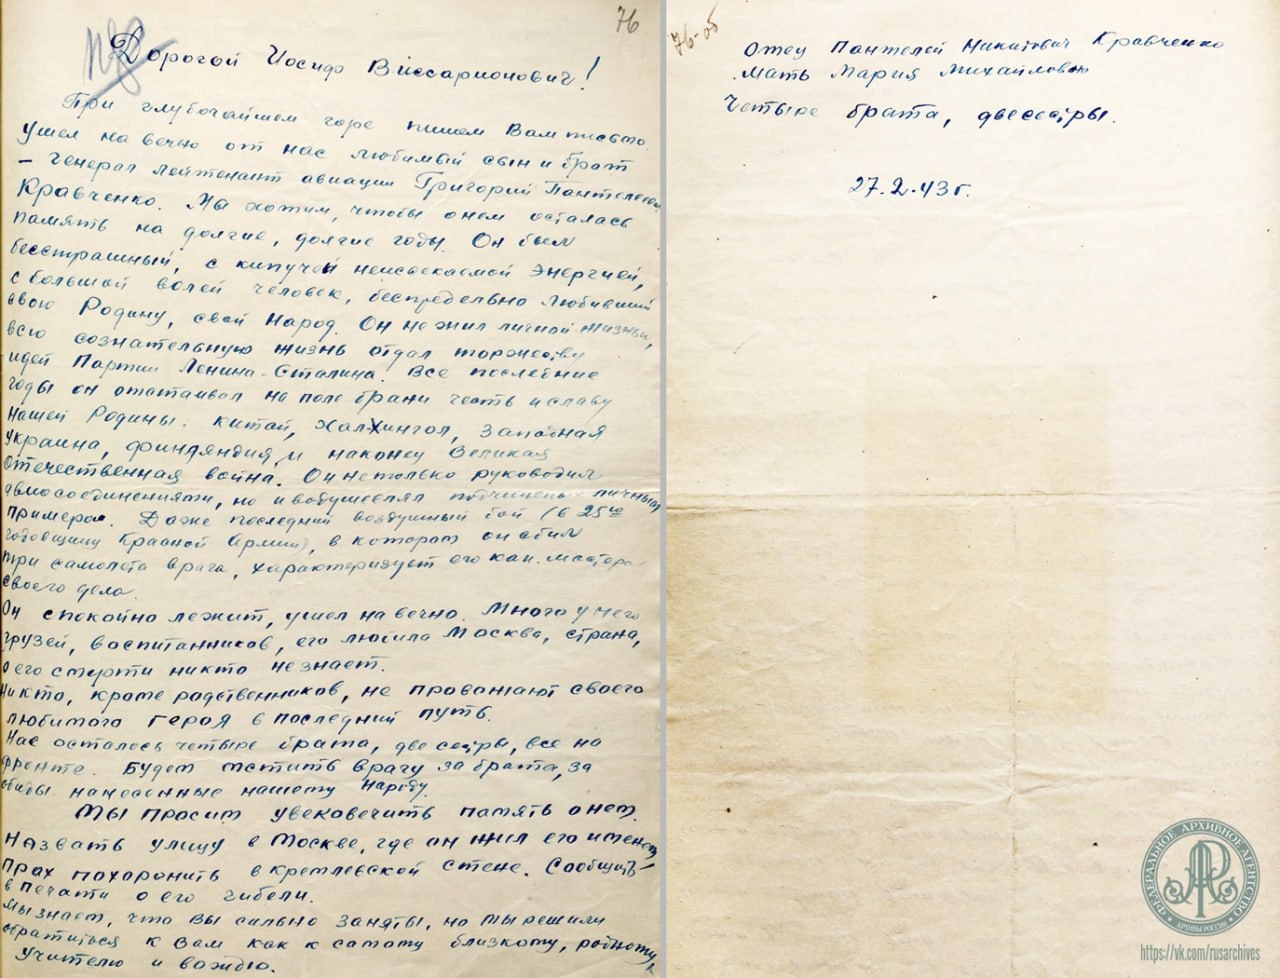 76
Дорогой Иосиф Виссарионович!
При глубочайшем горе пишем Вам письмо.
Ушел на вечно от нас любимый сын и брат
– генерал лейтенант авиации Григорий Пантелеев.
Кравченко. Мы хотим, чтобы о нем осталась
память на долгие, долгие годы. Он был
бесстрашный, с кипучей неиссекаемой энергией,
с большой волей человек, беспредельно любивший
свою Родину, свой народ. Он не жил личной жизнью,
всю сознательную жизнь отдал торжеству
идей Партии Ленина-Сталина. Все последние
годы он отстаивал на поле брани честь и славу
нашей Родины. Китай, Халхингол, западная
Украина, Финляндия и наконец Великая
Отечественная война. Он не только руководил
авиосоединениями, но и воодушевлял подчиненых личным
примером. Даже последний воздушный бой (в 25ую
годовщину Красной Армии), в котором он сбил
три самолета врага, характеризует его как мастера
своего дела.
Он спокойно лежит, ушел на вечно. Много у него
друзей, воспитанников, его любила Москва, страна,
о его смерти никто не знает.
Никто, кроме родственников, не провожают своего
любимого героя в последний путь.
Нас осталось четыре брата, две сестры, все на
фронте. Будем мстить врагу за брата, за
обиды нанесенные нашему народу.
Мы просим увековечить память о нем.
Назвать улицу в Москве, где он жил его именем,
Прах похоронить в кремлевской стене. Сообщить
в печати о его гибели.
Мы знаем, что Вы сильно заняты, но мы решили
обратиться к Вам как к самому близкому, родному,
Учителю и вождю.
76-об
Отец Пантелей Никитович Кравченко
Мать Мария Михайловна
Четыре брата, две сестры.
27.2.43г.
ФЕДЕРАЛЬНОЕ АРХИВНОЕ АГЕНТСТВО
АРХИВЫ РОССИИ
https://vk.com/rusarchives